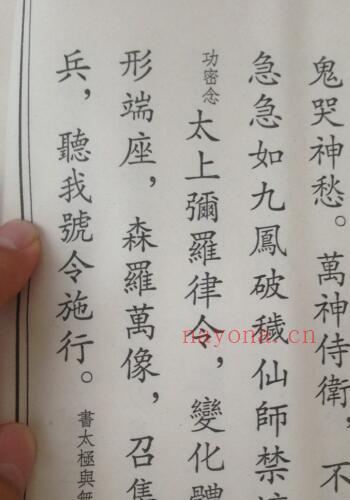 鬼哭神愁。萬神侍衛，不
急急如九鳳破穢仙師禁
功密念
太上彌羅律令，變化體
形端座，森羅萬像，召集
兵，聽我號令施行。
書太極與無
nayona.cn